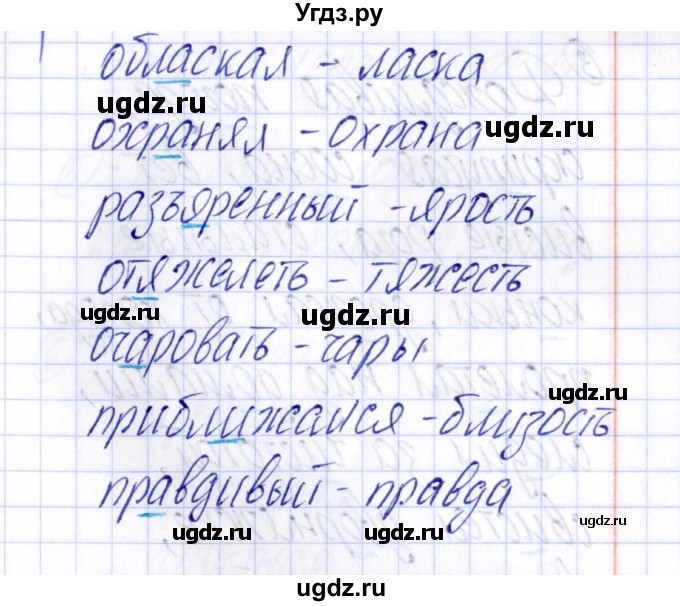 Угдз.ру
обласкал - ласка
ugdz.ru
ugdz.ru
охранял - охрана
разъяренный - ярость
отяжелеть - тяжесть
ugdz.ru
ugdz.ru
очаровать - чары
ugdz.ru
приближался - близость
правдивый - правда
ugdz.ru
ugdz.ru
ugdz.ru